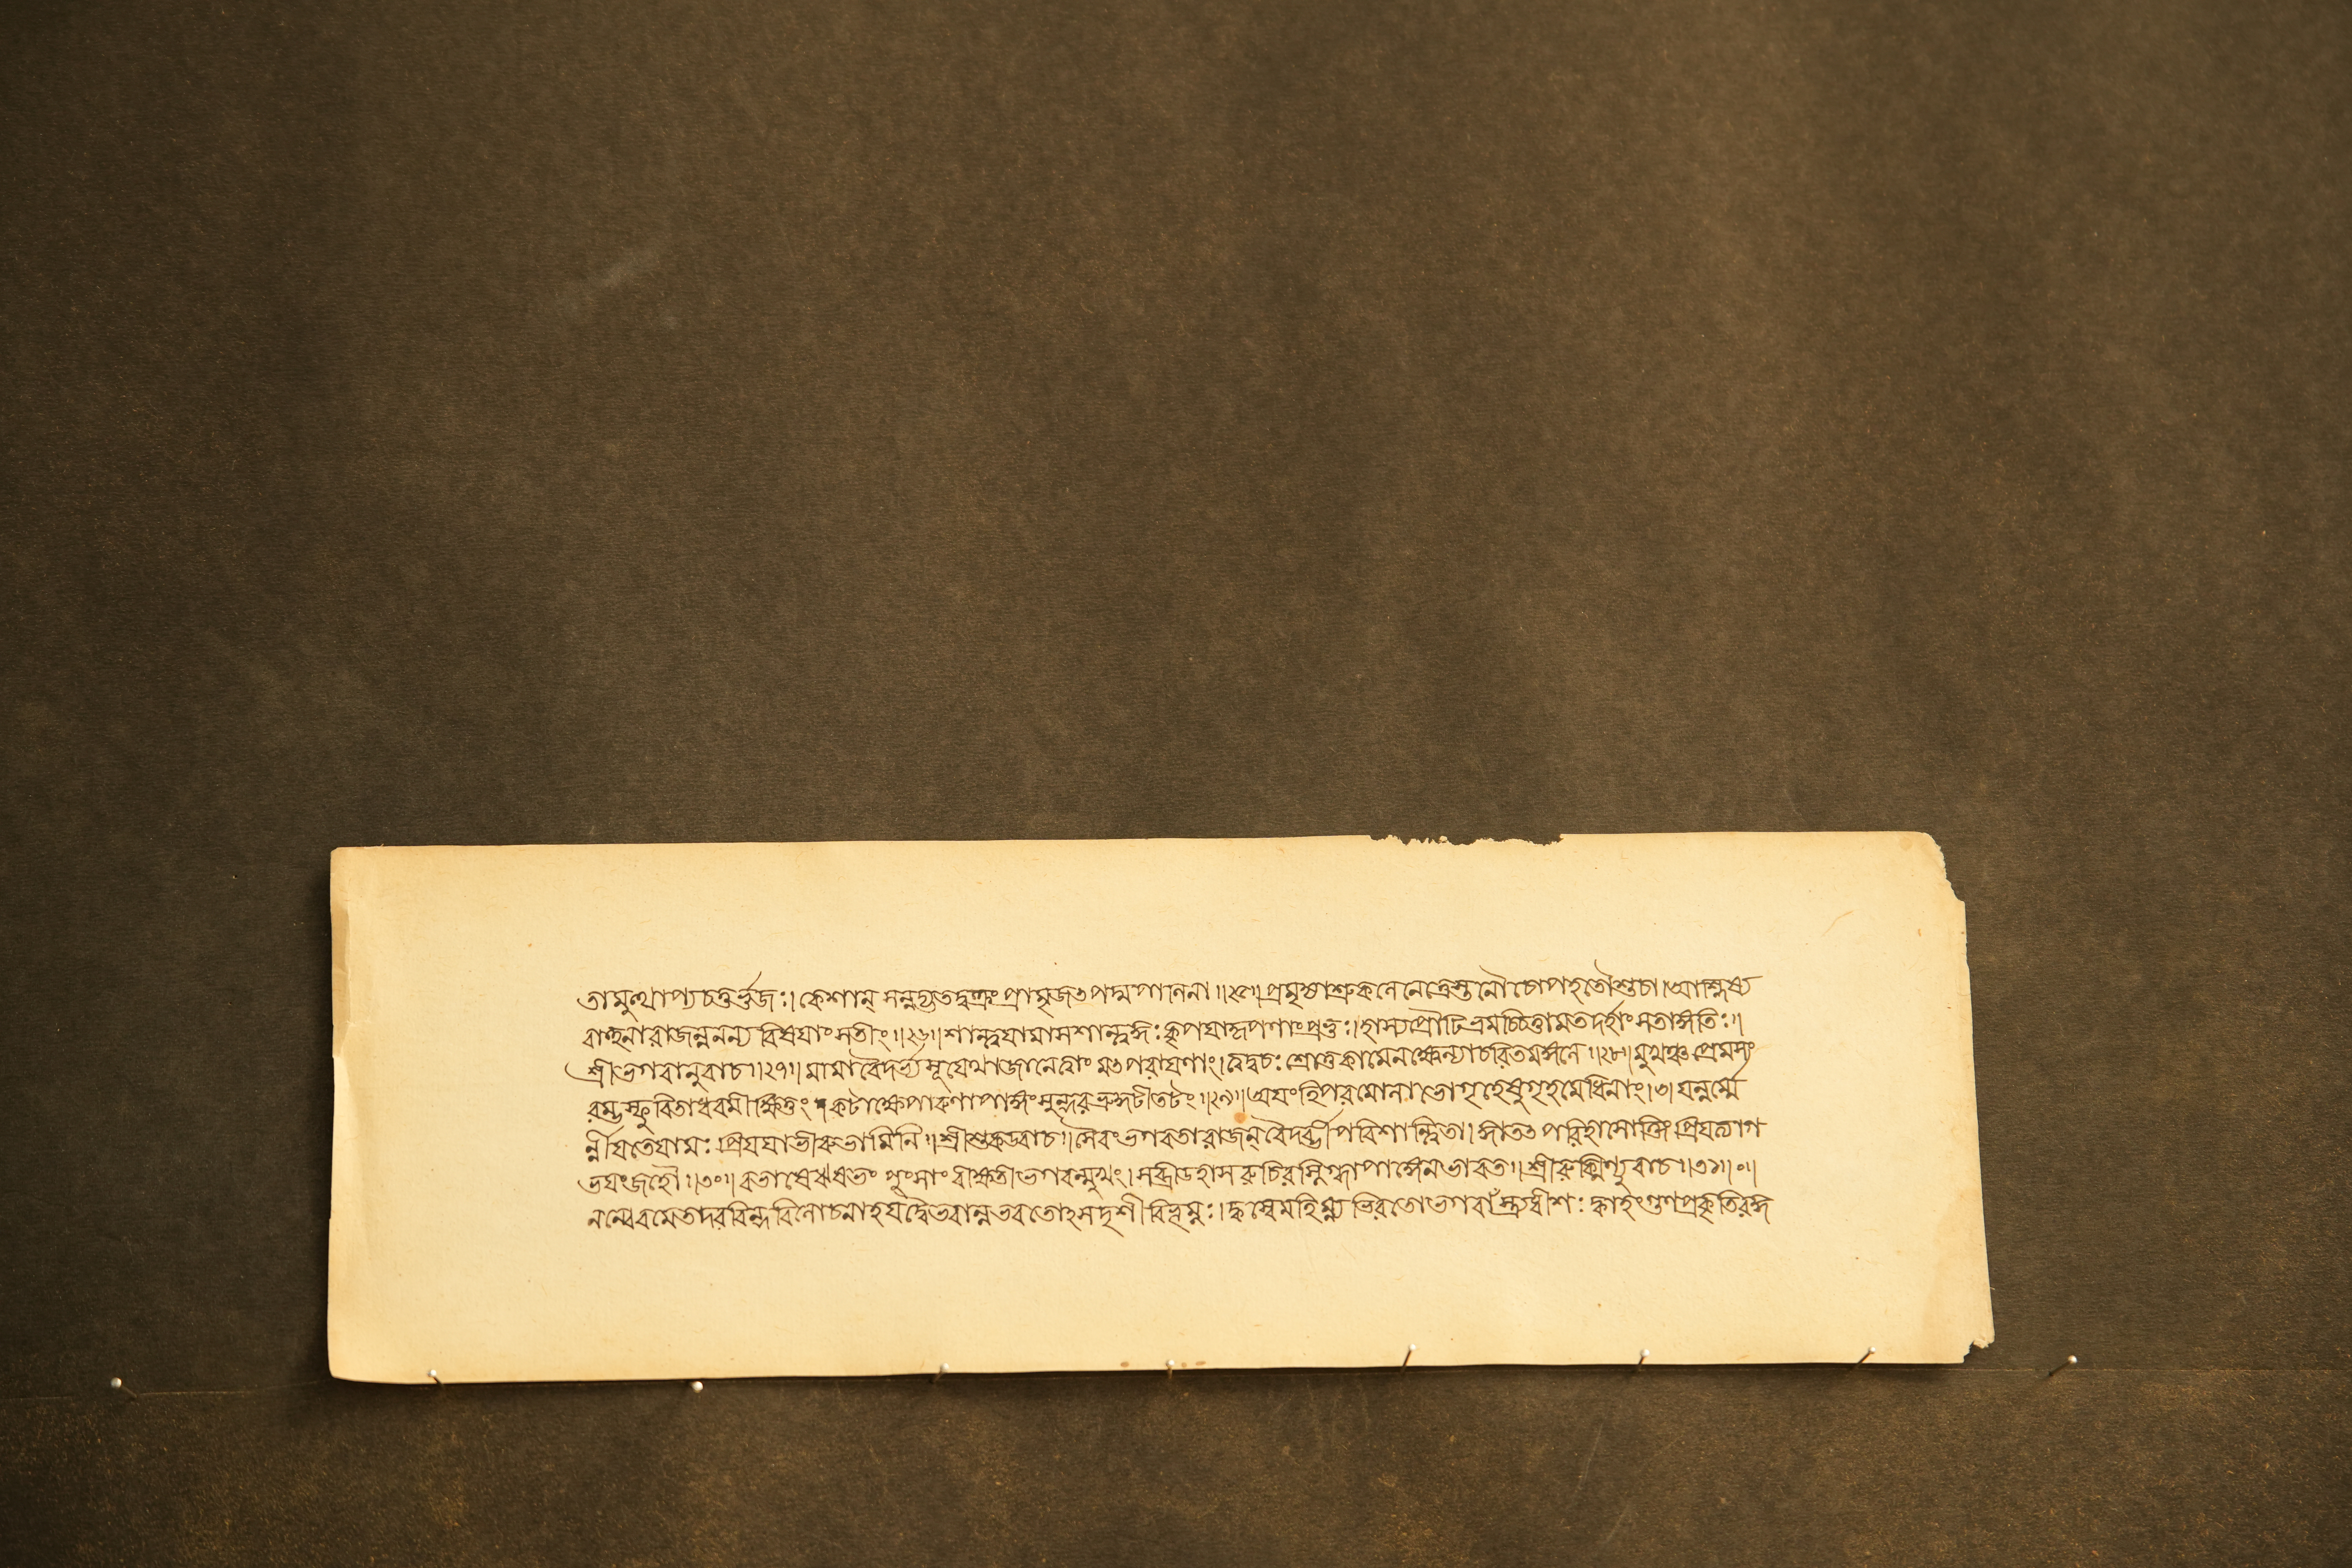 তামুত্থাপ্যচতুর্ভুজঃ। কেশান্ সমুহ্যতদ্বক্ত্রং প্রামৃজৎপদ্মপাণিনা॥২৫॥প্রমৃজ্যাশ্রুকলেনেত্রেস্তনৌচোপহতৌশুচা।আশ্লিষ্য
বাহুনারাজন্ননন্য বিষয়াংসতীং॥২৬॥শান্ত্বয়ামাসশান্ত্বজ্ঞঃকৃপয়াকৃপণাংপ্রভুঃ।হাস্যপ্রৌঢিভ্রমচ্চিত্তামতদর্হাংসতাঙ্গতিঃ॥
শ্রীভগবানুবাচ॥২৭॥ মামাবৈদর্ভ্যসূয়েথাজানেত্বাং মৎপরায়ণাং।ত্বদ্বচঃ শ্রোতুকামেনক্ষ্বেল্যাচরিতমঙ্গনে॥২৮॥মুখঞ্চপ্রেমসং
রম্ভস্ফুরিতাধরমীক্ষিতুং কটাক্ষেপারুণাপাঙ্গংসুন্দরভ্রুকুটীতটং॥২৯॥অয়ংহিপরমোলাভোগৃহেষুগৃহমেধিনাং। যন্নর্ম্মৈ
র্ন্নীয়তেযামঃপ্রিয়য়াভীরুভামিনি॥শ্রীশুকউবাচ॥সৈবংভগবতারাজন্ বৈদর্ভীপরিশান্ত্বিতা।জ্ঞাত্বাতৎপরিহাসোক্তিংপ্রিয়ত্যাগ
ভয়ংজহৌ॥৩০॥বভাষেঋষভং পুংসাং বীক্ষতীভগবন্মুখং।সব্রীডহাসরুচিরস্নিগ্ধাপাঙ্গেনভারত॥শ্রীরুক্মিণ্যুবাচ॥৩১॥০॥
নন্বেবমেতদরবিন্দবিলোচনাহযদ্বৈভবান্নভবতোঽসদৃশীবিভূম্নঃ।ক্বস্বেমহিম্ন্যভিরতোভগবাঁস্ত্র্যধীশঃ ক্বাহংগুণপ্রকৃতিরজ্ঞ